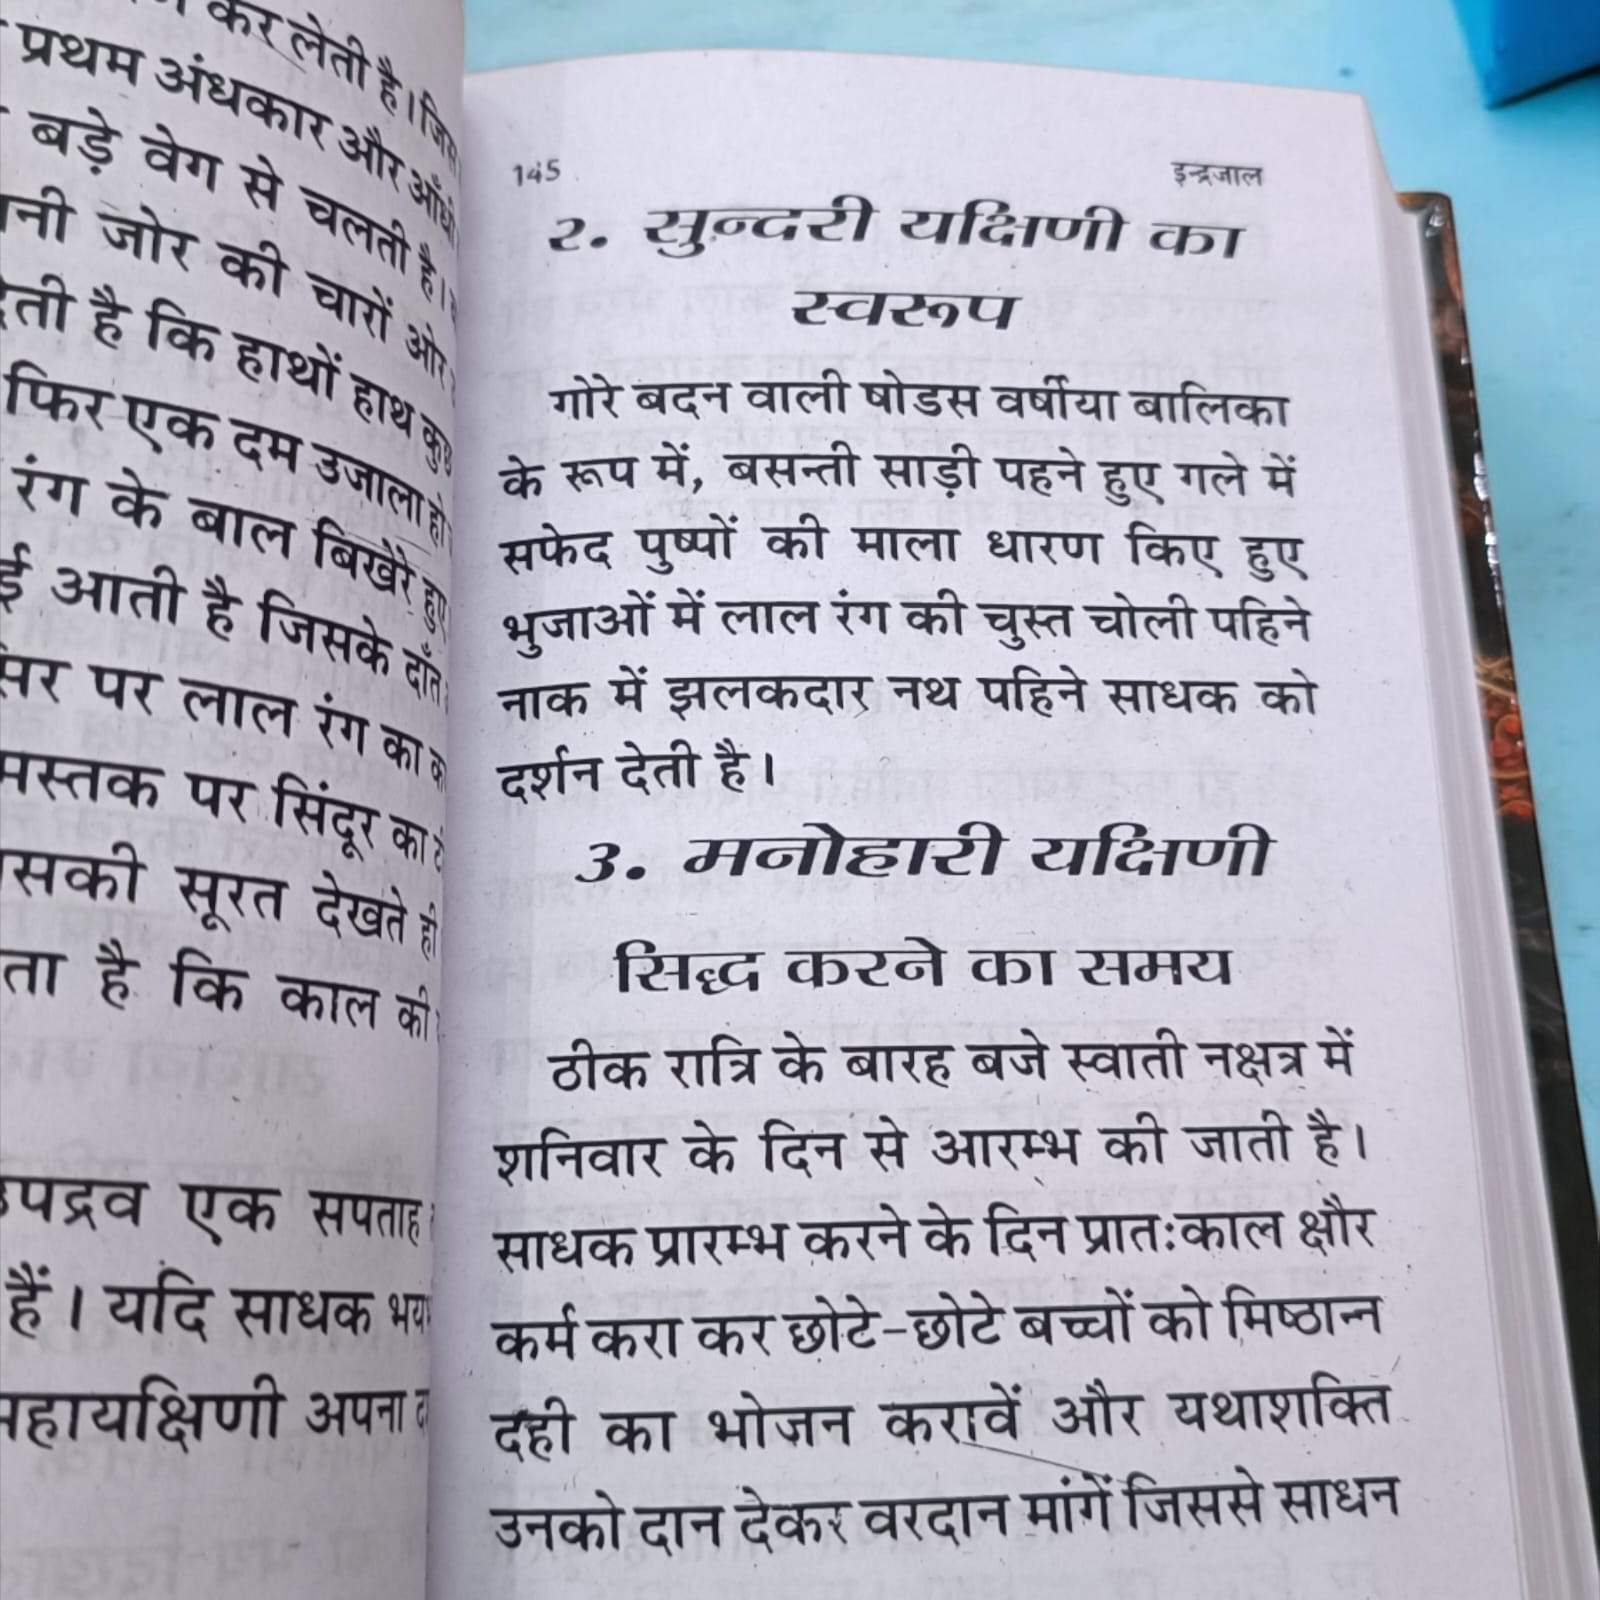 कर लेती है। जिस
प्रथम अंधकार और आँधी
बड़े वेग से चलती है।
नी जोर की चारों ओर
देती है कि हाथों हाथ कुछ
फिर एक दम उजाला हो
रंग के बाल बिखेरे हुए
ई आती है जिसके दाँत
सिर पर लाल रंग का
मस्तक पर सिंदूर का
सकी सूरत देखते ही
ता है कि काल की
उपद्रव एक सपताह
हैं। यदि साधक
महायक्षिणी अपना
145 इन्द्रजाल
2. सुन्दरी यक्षिणी का
स्वरूप
गोरे बदन वाली षोडस वर्षीया बालिका
के रूप में, बसन्ती साड़ी पहने हुए गले में
सफेद पुष्पों की माला धारण किए हुए
भुजाओं में लाल रंग की चुस्त चोली पहिने
नाक में झलकदार नथ पहिने साधक को
दर्शन देती है।
3. मनोहारी यक्षिणी
सिद्ध करने का समय
ठीक रात्रि के बारह बजे स्वाती नक्षत्र में
शनिवार के दिन से आरम्भ की जाती है।
साधक प्रारम्भ करने के दिन प्रातःकाल क्षौर
कर्म करा कर छोटे-छोटे बच्चों को मिष्ठान्न
दही का भोजन करावें और यथाशक्ति
उनको दान देकर वरदान मांगें जिससे साधन